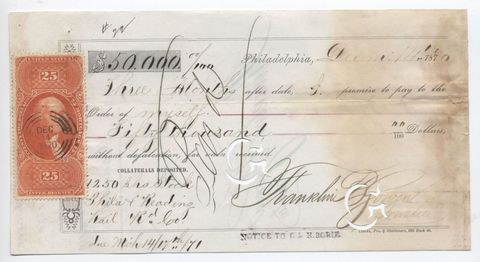 $50,000 00/100
Philadelphia, 187
Three Months after date, I promise to pay to the
Order of myself
Fifty Thousand 00/100 Dollars,
without defalcation, for value received.
COLLATERALS DEPOSITED.
1250 shs Stock
Phila & Reading
Rail Rd Co
Franklin
due Mch 14/17th/71
NOTICE TO C. & H. BORIE
25 25
DEC
25 25